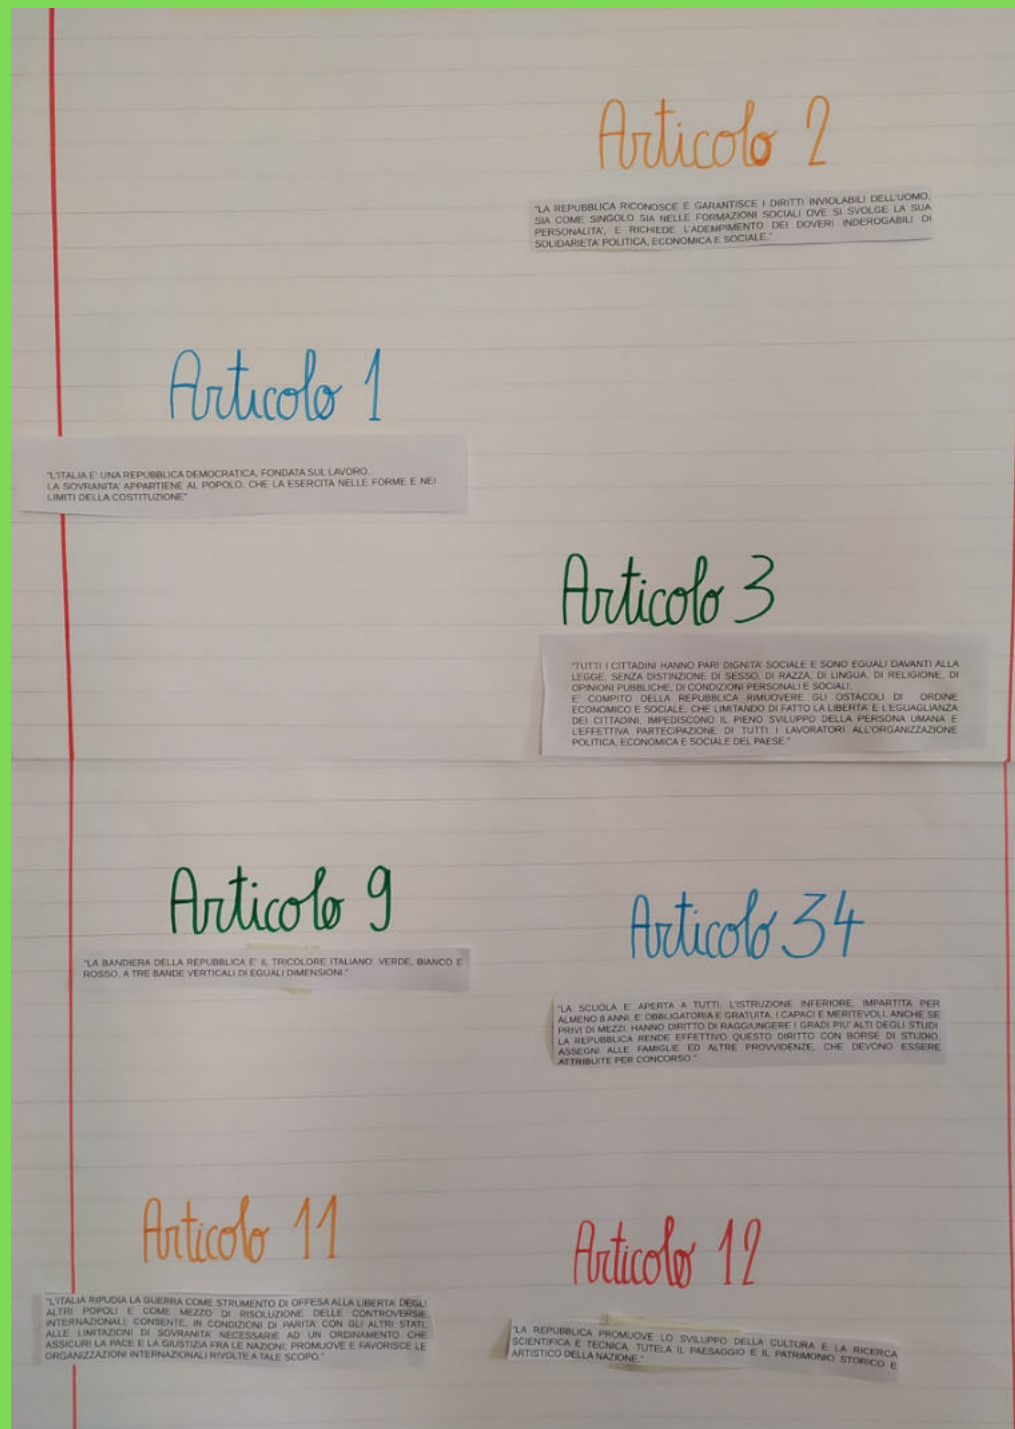 Articolo 2
"LA REPUBBLICA RICONOSCE E GARANTISCE I DIRITTI INVIOLABILI DELL'UOMO,
SIA COME SINGOLO SIA NELLE FORMAZIONI SOCIALI OVE SI SVOLGE LA SUA
PERSONALITA', E RICHIEDE L'ADEMPIMENTO DEI DOVERI INDEROGABILI DI
SOLIDARIETA' POLITICA, ECONOMICA E SOCIALE."
Articolo 1
"L'ITALIA E' UNA REPUBBLICA DEMOCRATICA, FONDATA SUL LAVORO.
LA SOVRANITA' APPARTIENE AL POPOLO, CHE LA ESERCITA NELLE FORME E NEI
LIMITI DELLA COSTITUZIONE"
Articolo 3
"TUTTI I CITTADINI HANNO PARI DIGNITA' SOCIALE E SONO EGUALI DAVANTI ALLA
LEGGE, SENZA DISTINZIONE DI SESSO, DI RAZZA, DI LINGUA, DI RELIGIONE, DI
OPINIONI PUBBLICHE, DI CONDIZIONI PERSONALI E SOCIALI.
E' COMPITO DELLA REPUBBLICA RIMUOVERE GLI OSTACOLI DI ORDINE
ECONOMICO E SOCIALE, CHE LIMITANDO DI FATTO LA LIBERTA' E L'EGUAGLIANZA
DEI CITTADINI, IMPEDISCONO IL PIENO SVILUPPO DELLA PERSONA UMANA E
L'EFFETTIVA PARTECIPAZIONE DI TUTTI I LAVORATORI ALL'ORGANIZZAZIONE
POLITICA, ECONOMICA E SOCIALE DEL PAESE."
Articolo 9
"LA BANDIERA DELLA REPUBBLICA E' IL TRICOLORE ITALIANO: VERDE, BIANCO E
ROSSO, A TRE BANDE VERTICALI DI EGUALI DIMENSIONI."
Articolo 34
"LA SCUOLA E' APERTA A TUTTI. L'ISTRUZIONE INFERIORE, IMPARTITA PER
ALMENO 8 ANNI, E' OBBLIGATORIA E GRATUITA. I CAPACI E MERITEVOLI, ANCHE SE
PRIVI DI MEZZI, HANNO DIRITTO DI RAGGIUNGERE I GRADI PIU' ALTI DEGLI STUDI.
LA REPUBBLICA RENDE EFFETTIVO QUESTO DIRITTO CON BORSE DI STUDIO,
ASSEGNI ALLE FAMIGLIE ED ALTRE PROVVIDENZE, CHE DEVONO ESSERE
ATTRIBUITE PER CONCORSO."
Articolo 11
"L'ITALIA RIPUDIA LA GUERRA COME STRUMENTO DI OFFESA ALLA LIBERTA' DEGLI
ALTRI POPOLI E COME MEZZO DI RISOLUZIONE DELLE CONTROVERSIE
INTERNAZIONALI; CONSENTE, IN CONDIZIONI DI PARITA' CON GLI ALTRI STATI,
ALLE LIMITAZIONI DI SOVRANITA' NECESSARIE AD UN ORDINAMENTO CHE
ASSICURI LA PACE E LA GIUSTIZIA FRA LE NAZIONI; PROMUOVE E FAVORISCE LE
ORGANIZZAZIONI INTERNAZIONALI RIVOLTE A TALE SCOPO."
Articolo 12
"LA REPUBBLICA PROMUOVE LO SVILUPPO DELLA CULTURA E LA RICERCA
SCIENTIFICA E TECNICA. TUTELA IL PAESAGGIO E IL PATRIMONIO STORICO E
ARTISTICO DELLA NAZIONE."